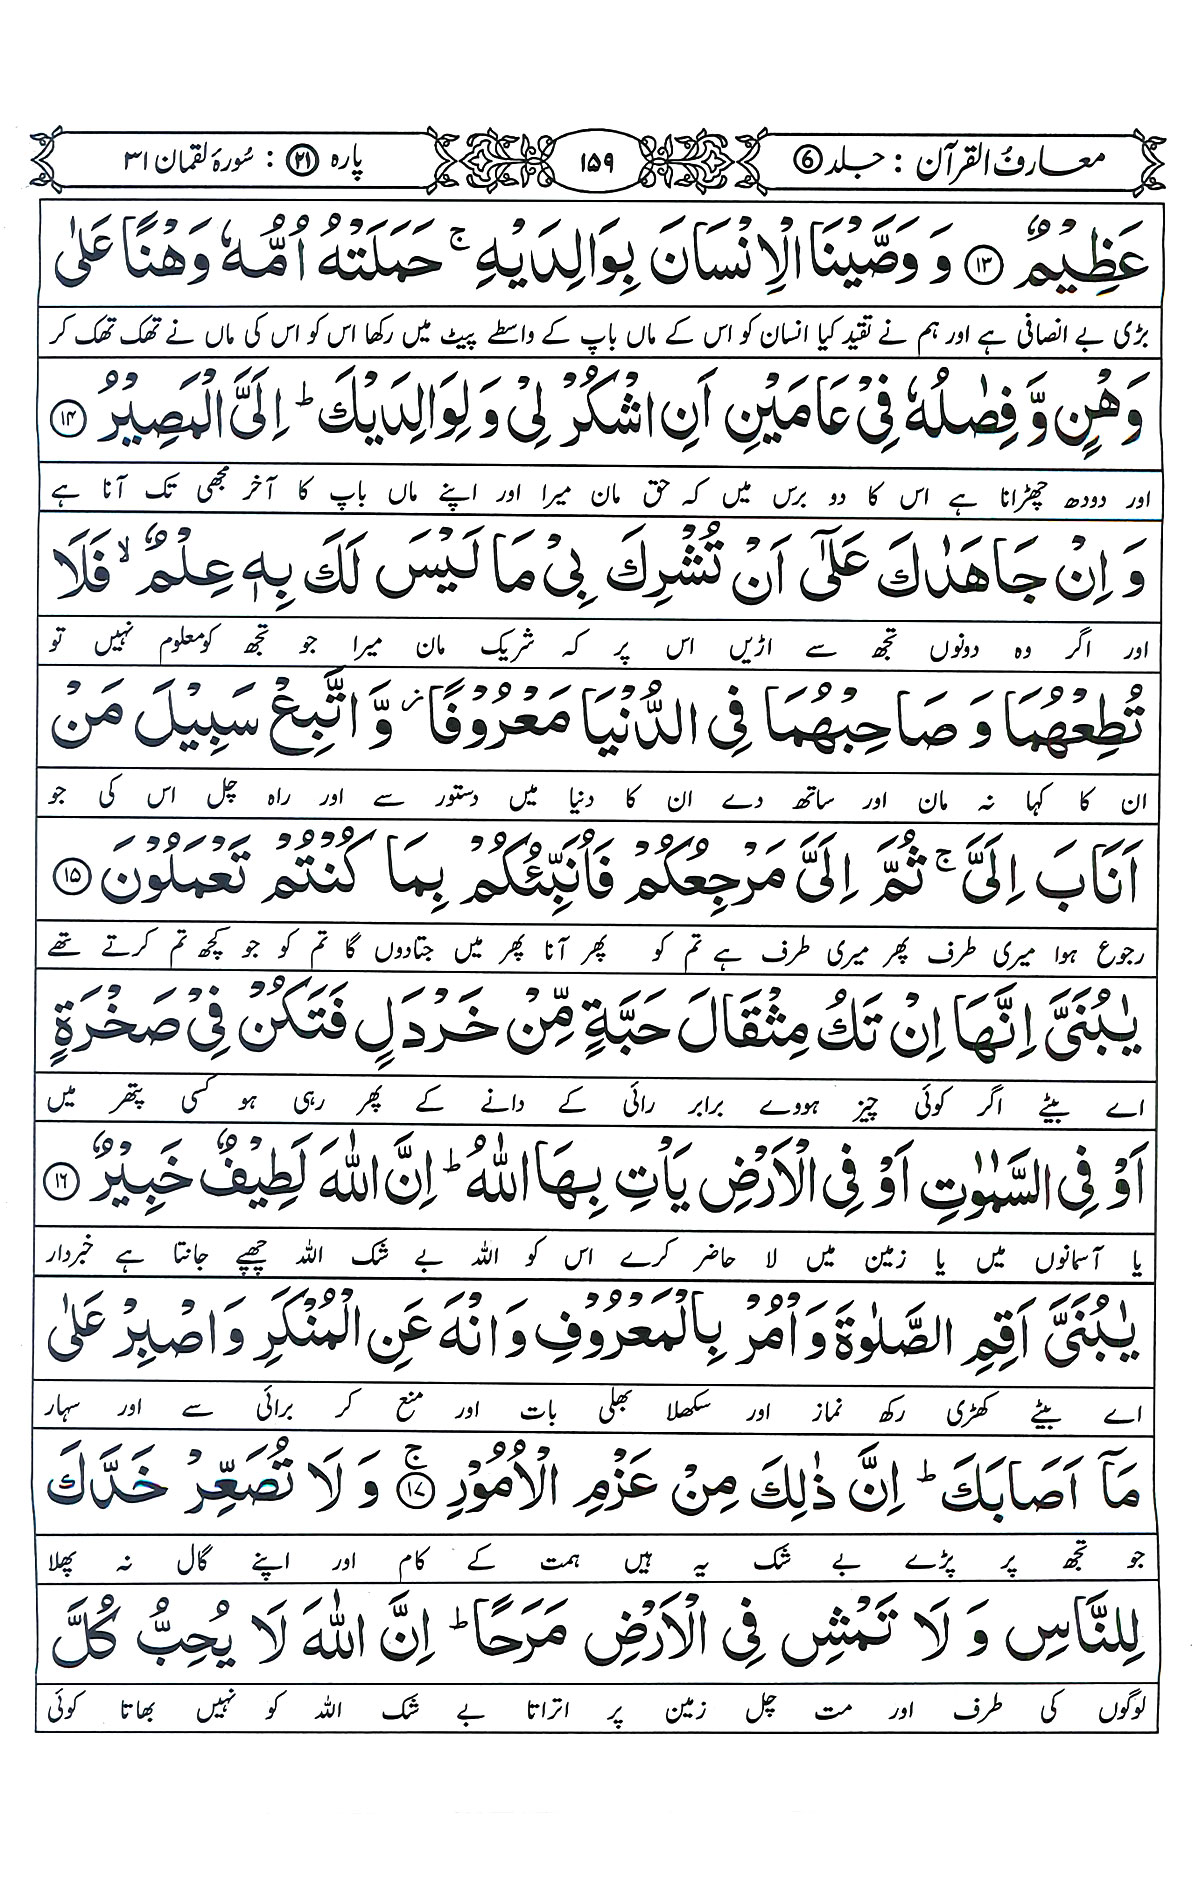 معارف القرآن : جلد ⑥
۱۵۹
پارہ ㉑ : سُورۂ لقمان ۳۱
عَظِيْمٌ ۝۱۳ وَ وَصَّيْنَا الْاِنْسَانَ بِوَالِدَيْهِ ۚ حَمَلَتْهُ اُمُّهٗ وَهْنًا عَلٰى
بڑی بے انصافی ہے اور ہم نے تقید کیا انسان کو اس کے ماں باپ کے واسطے پیٹ میں رکھا اس کو اس کی ماں نے تھک تھک کر
وَهْنٍ وَّ فِصٰلُهٗ فِيْ عَامَيْنِ اَنِ اشْكُرْ لِيْ وَ لِوَالِدَيْكَ ؕ اِلَيَّ الْمَصِيْرُ ۝۱۴
اور دودھ چھڑانا ہے اس کا دو برس میں کہ حق مان میرا اور اپنے ماں باپ کا آخر مجھی تک آنا ہے
وَ اِنْ جَاهَدٰكَ عَلٰۤى اَنْ تُشْرِكَ بِيْ مَا لَيْسَ لَكَ بِهٖ عِلْمٌ ۙ فَلَا
اور اگر وہ دونوں تجھ سے اڑیں اس پر کہ شریک مان میرا جو تجھ کومعلوم نہیں تو
تُطِعْهُمَا وَ صَاحِبْهُمَا فِي الدُّنْيَا مَعْرُوْفًا ؗ وَّ اتَّبِعْ سَبِيْلَ مَنْ
ان کا کہا نہ مان اور ساتھ دے ان کا دنیا میں دستور سے اور راہ چل اس کی جو
اَنَابَ اِلَيَّ ۚ ثُمَّ اِلَيَّ مَرْجِعُكُمْ فَاُنَبِّئُكُمْ بِمَا كُنْتُمْ تَعْمَلُوْنَ ۝۱۵
رجوع ہوا میری طرف پھر میری طرف ہے تم کو پھر آنا پھر میں جتادوں گا تم کو جو کچھ تم کرتے تھے
يٰبُنَيَّ اِنَّهَا اِنْ تَكُ مِثْقَالَ حَبَّةٍ مِّنْ خَرْدَلٍ فَتَكُنْ فِيْ صَخْرَةٍ
اے بیٹے اگر کوئی چیز ہووے برابر رائی کے دانے کے پھر رہی ہو کسی پتھر میں
اَوْ فِي السَّمٰوٰتِ اَوْ فِي الْاَرْضِ يَاْتِ بِهَا اللّٰهُ ؕ اِنَّ اللّٰهَ لَطِيْفٌ خَبِيْرٌ ۝۱۶
یا آسمانوں میں یا زمین میں لا حاضر کرے اس کو اللہ بے شک اللہ چھپے جانتا ہے خبردار
يٰبُنَيَّ اَقِمِ الصَّلٰوةَ وَاْمُرْ بِالْمَعْرُوْفِ وَ انْهَ عَنِ الْمُنْكَرِ وَ اصْبِرْ عَلٰى
اے بیٹے کھڑی رکھ نماز اور سکھلا بھلی بات اور منع کر برائی سے اور سہار
مَاۤ اَصَابَكَ ؕ اِنَّ ذٰلِكَ مِنْ عَزْمِ الْاُمُوْرِ ۝۱۷ۚ وَ لَا تُصَعِّرْ خَدَّكَ
جو تجھ پر پڑے بے شک یہ ہیں ہمت کے کام اور اپنے گال نہ پھلا
لِلنَّاسِ وَ لَا تَمْشِ فِي الْاَرْضِ مَرَحًا ؕ اِنَّ اللّٰهَ لَا يُحِبُّ كُلَّ
لوگوں کی طرف اور مت چل زمین پر اتراتا بے شک اللہ کو نہیں بھاتا کوئی